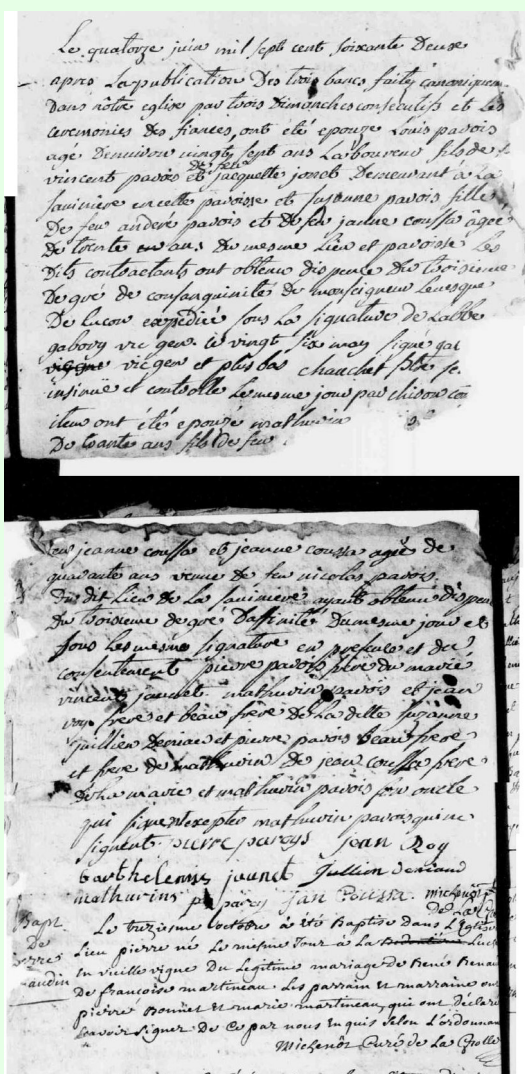 Le quatorze juin mil sept cent soixante Deuse
apres La publication Des trois bancs faitte canoniquem
Dans nôtre eglise par trois Dimanches consecutifs et Les
ceremonies des fiances, ont eté epouze Louis parois
agé Denviron vingty sept ans Laboureur fils de
vincent parois et De feu jacquette jonet Demeurant a La
saviniere en cette paroisse et suzanne parois fille
De feu andré parois et De feu jeanne coussa âgee
De trente ans Du mesme Lieu et paroisse Les
Dits contractants ont obtenu dispence Du troisieme
Degré de consanguinité De monseigneur Levesque
De Lucon expediée sous La signature de Labbe
gaboury vic gen Le vingt six may signe gab
vic gen et plus bas chauchet
insinué et controlle Lemesme jour par
ont étés epouzé mathurin
De trante ans fils De feu
feu jeanne coussa et jeanne coussa agée de
quarante ans veuve De feu nicolas parois
Du dit Lieu De La saviniere ayant obtenu Dispen
Du troisieme degré Daffinité Du mesme jour et
sous Les mesme signature en presence et du
consentement pierre parois pere du marié
vincent jaunet mathurin parois et jean
roy frere et beau frère De La ditte suzanne
jullien Deniau et pierre parois beau frere
et frere De mathurin De jean coussa frere
De La mariee et mathurin parois son oncle
qui signent excepte mathurin parois qui ne
signent. pierre paroys jean Roy
barthelemy jaunet Jullien deniaud
mathurins paroy jan Coussa. michenôt
De La
Bapt
De
pierre
Le treziesme octobre a été Baptisé Dans L'Eglise
Lieu pierre né Le mesme Jour a La
en vieille vigne Du Legitime mariage De René Renau
De francoise martineau. Les parrain et marraine on
pierre Bonnet et marie martineau, qui ont Déclaré
scavoir signer De Ce par nous Enquis selon L'ordonnan
Michenôt Curé de La Grolle